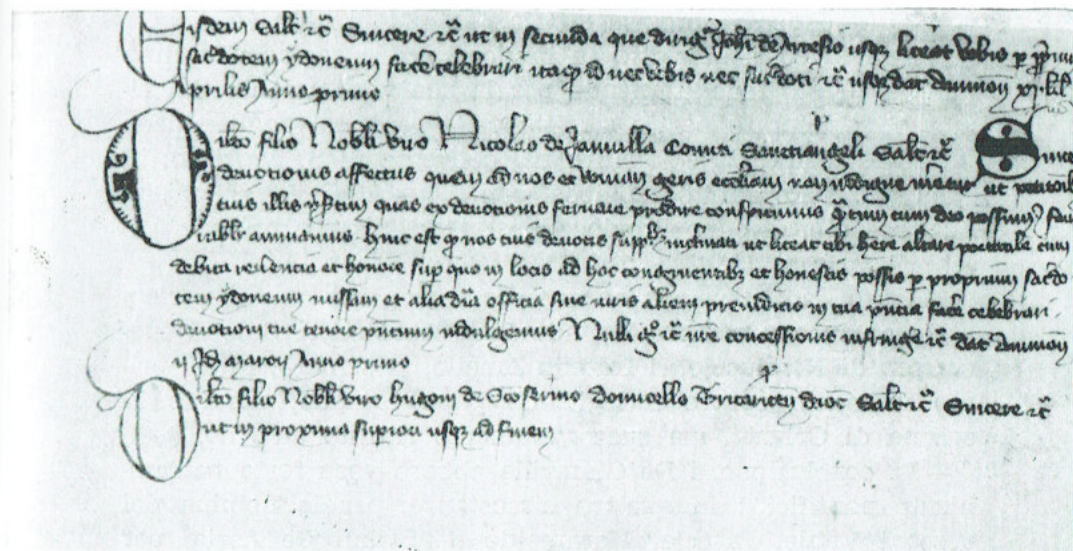 Eisdem salt̄ rc̄ Sincere rc̄ ut in secunda que dirigit̄ Joh̄i de Artesio usqȝ liceat vobis p̄ p̄priū
sacdotem ydoneum face celebrari ita qđ nec vobis nec sacdoti rc̄ usqȝ dat Auinion̄ xj kl̄
Aprilis Anno primo
Dilc̄o filio Nobili viro Nicolao de Jamuilla Comiti Sanctiangeli salt̄ rc̄ Sincere
deuotionis affectus quem ad nos et Romanā geris eccl̄iam non indigne meret̄ ut petitionib
tuis illis p̄sertim quas ex deuotionis feruore prodire conspicimus q̄tum cum deo possum̄ fau
orabilr̄ annuamus hinc est qđ nos tuis deuotis supp̄bȝ inclinati ut liceat tibi her̄e altare portatile cum
debita reuerencia et honore sup̄ quo in locis ad hoc congruentibȝ et honestis possis p̄ proprium sacdo
tem ydoneum missam et alia diuīa officia sine iuris alieni preiudicio in tua p̄ncia facer̄ celebrari
deuotioni tue tenore p̄ntium indulgemus Nulli g̊ rc̄ nr̄e concessionis infringer̄ rc̄ dat Auinion̄
ij Id̄ Marcij Anno primo
Dilc̄o filio Nobili viro hugoni de Scoferino domicello Tricariceñ dioc̄ salt̄ rc̄ Sincere rc̄
ut in proxima superiori usqȝ ad finem